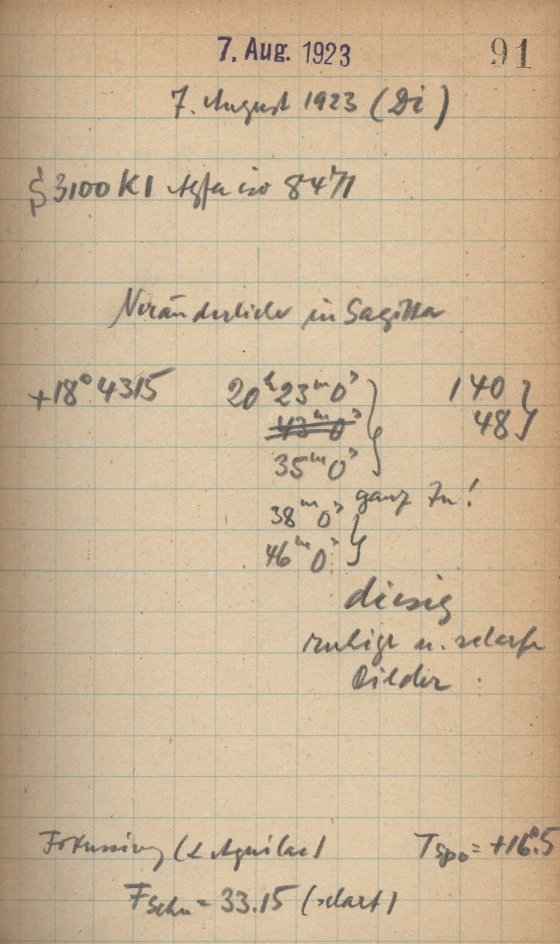 7. Aug. 1923 91
7. August 1923 (Di)
S 3100 KI Agfa iso 8471
Veränderliche in Sagitta
+18° 4315 20ʰ23ᵐ0ˢ 140
43ᵐ0ˢ 48
35ᵐ0ˢ
ganz zu!
38ᵐ0ˢ
46ᵐ0ˢ
diesig
ruhige u. scharfe
Bilder
Fokussierung (α Aquilae) T = +16°.5
F = 33.15 (scharf)